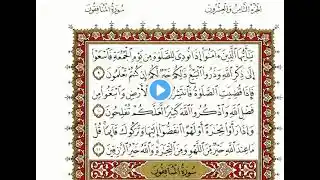 الجزء الثامن والعشرون سورة المنافقون
يَٰٓأَيُّهَا ٱلَّذِينَ ءَامَنُوٓا۟ إِذَا نُودِىَ لِلصَّلَوٰةِ مِن يَوْمِ ٱلْجُمُعَةِ فَٱسْعَوْا۟
إِلَىٰ ذِكْرِ ٱللَّهِ وَذَرُوا۟ ٱلْبَيْعَ ذَٰلِكُمْ خَيْرٌ لَّكُمْ إِن كُنتُمْ تَعْلَمُونَ ٩
فَإِذَا قُضِيَتِ ٱلصَّلَوٰةُ ٱلْأَرْضِ وَٱبْتَغُوا۟ مِن
فَضْلِ ٱللَّهِ وَٱذْكُرُوا۟ ٱللَّهَ كَثِيرًا لَّعَلَّكُمْ تُفْلِحُونَ ١٠
وَإِذَا رَأَوْا۟ تِجَٰرَةً أَوْ لَهْوًا ٱنفَضُّوٓا۟ إِلَيْهَا وَتَرَكُوكَ قَآئِمًا قُلْ
مَا عِندَ ٱللَّهِ خَيْرٌ مِّنَ ٱللَّهْوِ وَمِنَ ٱلتِّجَٰرَةِ وَٱللَّهُ خَيْرُ ٱلرَّٰزِقِينَ ١١
سورة المنافقون